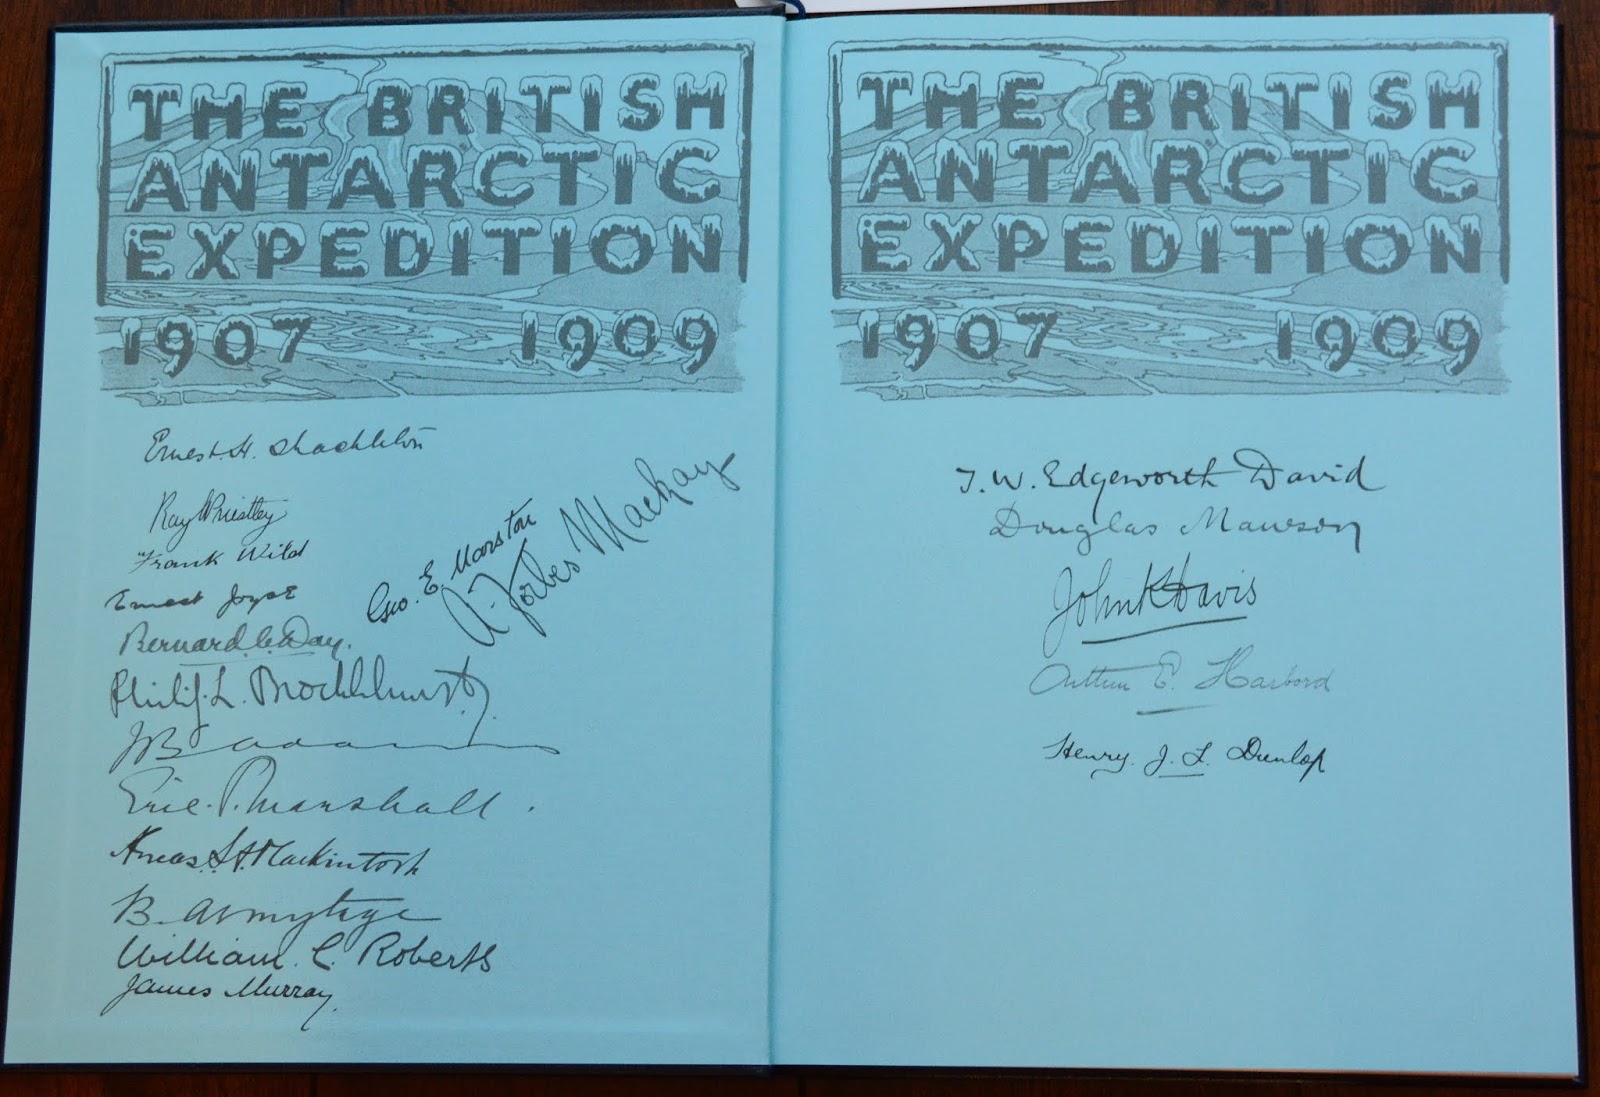 THE BRITISH
ANTARCTIC
EXPEDITION
1907 1909
Ernest. H. Shackleton
Ray Priestley
Frank Wild
Ernest Joyce
Bernard. C. Day.
Philip. L. Brocklehurst.
JB Adams
Eric. P. Marshall.
Aeneas. L. A. Mackintosh
B. Armytage
William. C. Roberts
James Murray.
Geo. E. Marston
A. Forbes Mackay
THE BRITISH
ANTARCTIC
EXPEDITION
1907 1909
T. W. Edgeworth David
Douglas Mawson
John K Davis
Arthur E. Harbord
Henry. J. L. Dunlop